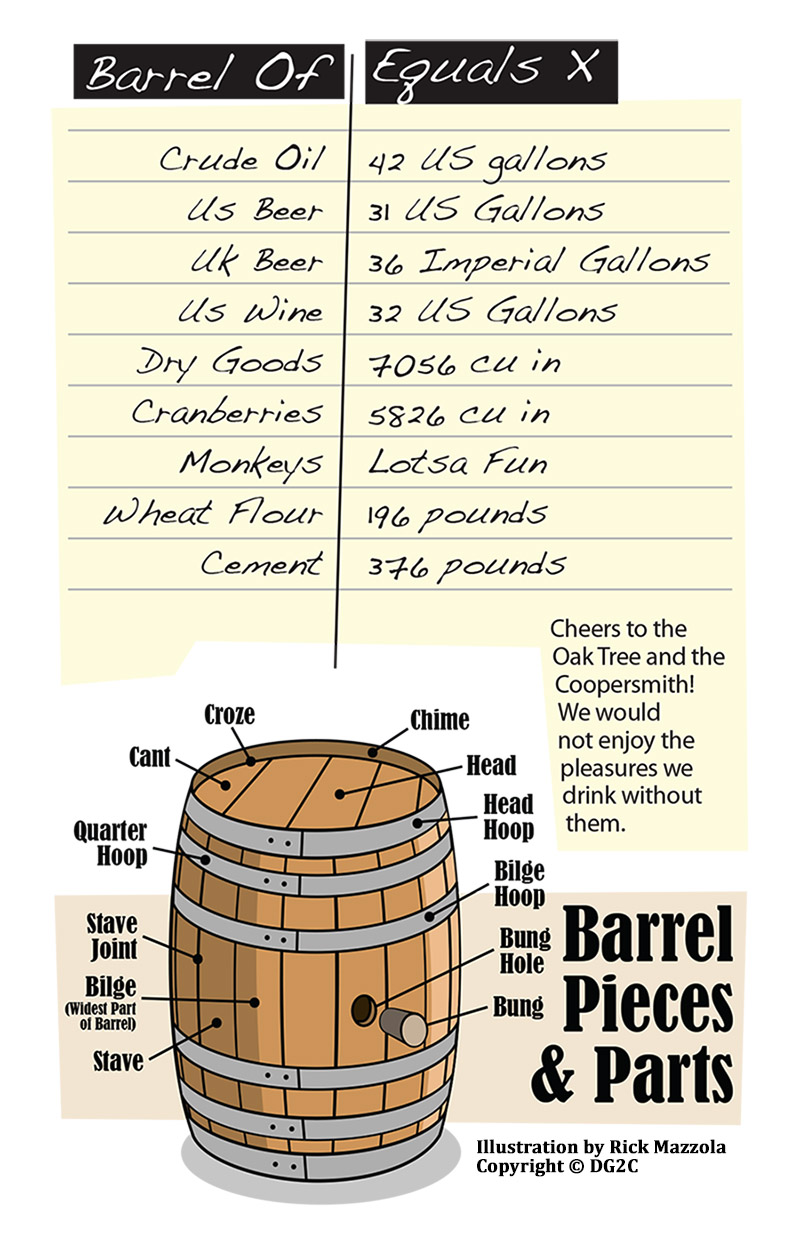 Barrel Of Equals X
Crude Oil 42 US gallons
Us Beer 31 US Gallons
Uk Beer 36 Imperial Gallons
Us Wine 32 US Gallons
Dry Goods 7056 cu in
Cranberries 5826 cu in
Monkeys Lotsa Fun
Wheat Flour 196 pounds
Cement 376 pounds
Cheers to the
Oak Tree and the
Coopersmith!
We would
not enjoy the
pleasures we
drink without
them.
Croze
Chime
Cant
Head
Quarter
Hoop
Head
Hoop
Bilge
Hoop
Stave
Joint
Bung
Hole
Bilge
(Widest Part
of Barrel)
Bung
Stave
Barrel
Pieces
& Parts
Illustration by Rick Mazzola
Copyright © DG2C